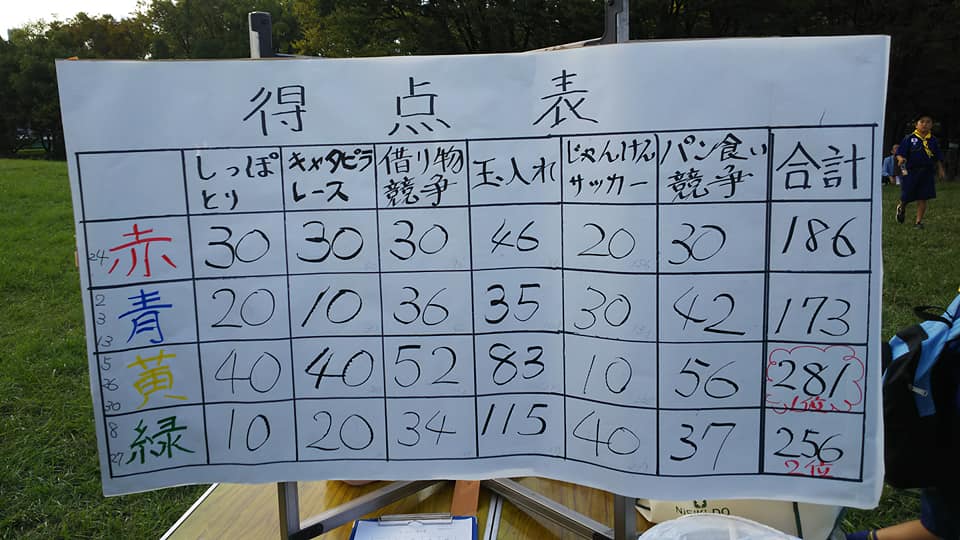 得点表
しっぽとり キャタピラレース 借り物競争 玉入れ じゃんけんサッカー パン食い競争 合計
24 赤 30 30 30 46 20 30 186
2 3 13 青 20 10 36 35 30 42 173
5 26 30 黄 40 40 52 83 10 56 281 1位
8 27 緑 10 20 34 115 40 37 256 2位
NISIKI DO